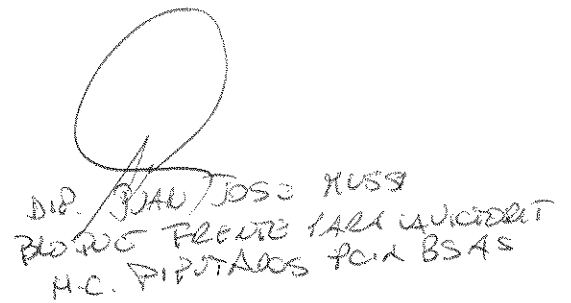 DIP. JUAN JOSE MUSSI
BLOQUE FRENTE PARA LA VICTORIA
H.C. DIPUTADOS PCIA BSAS